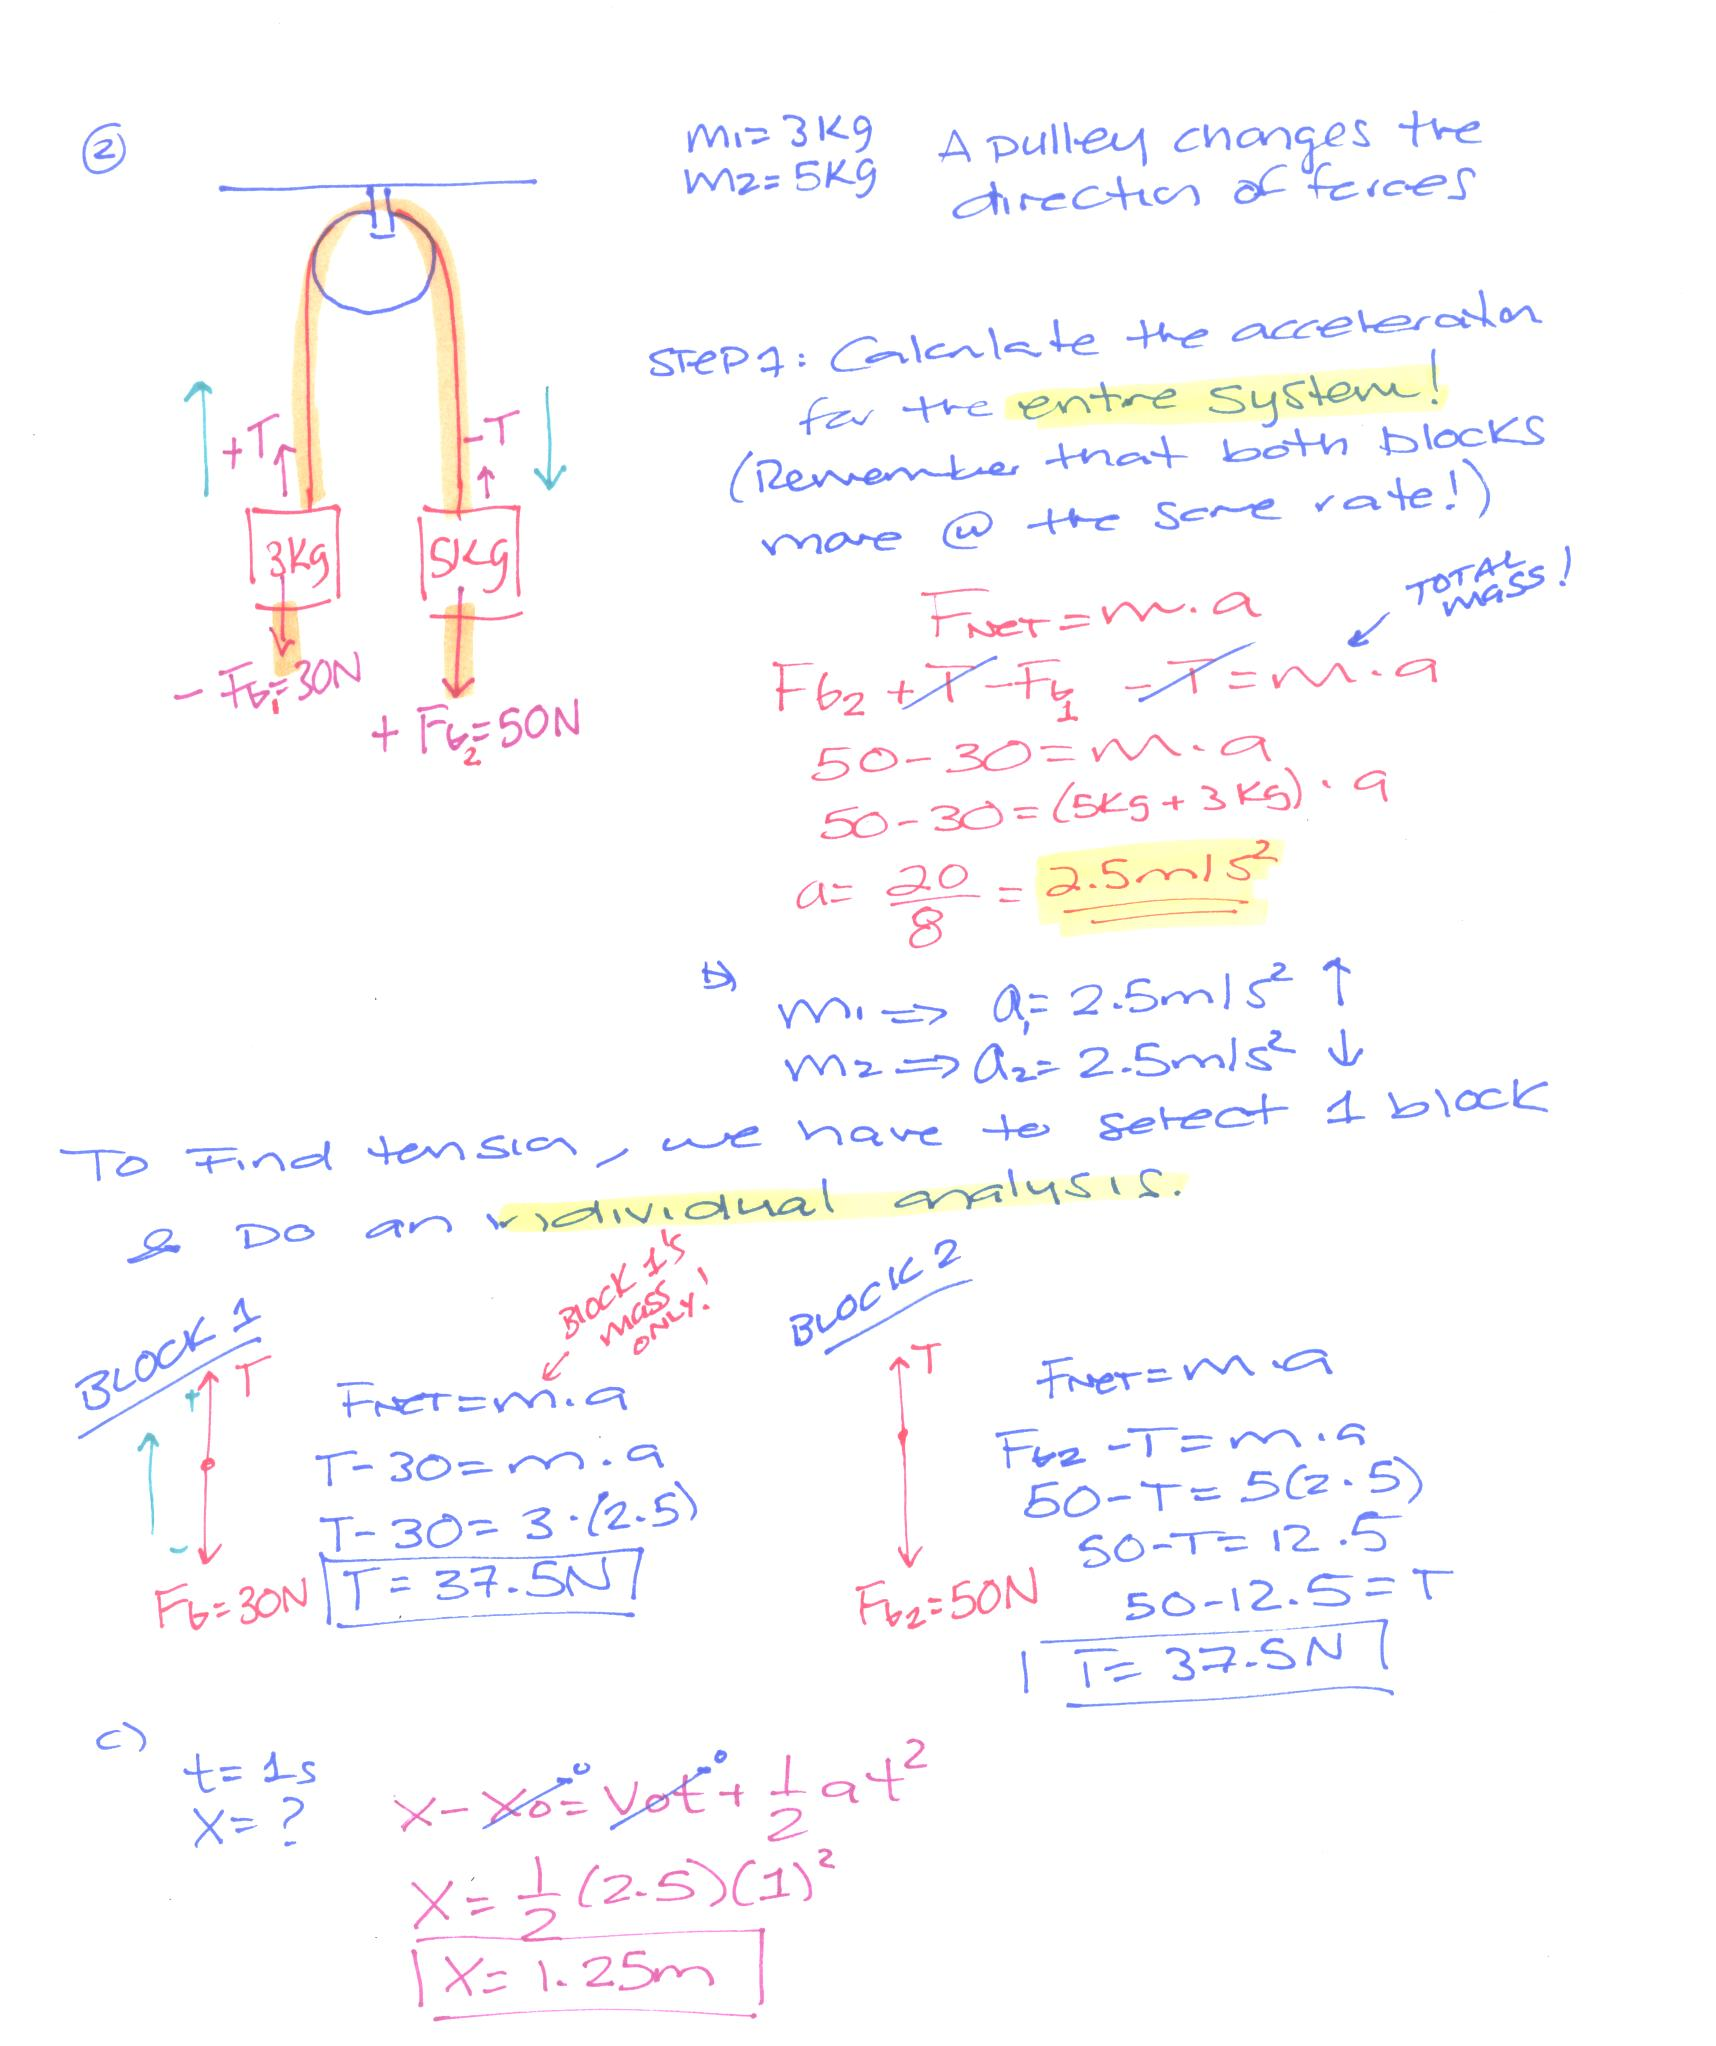 ②
m1=3Kg
m2=5Kg
A pulley changes the
direction of forces
STEP 1: Calculate the acceleration
for the entire system!
(Remember that both blocks
move @ the same rate!)
+T
-T
3Kg
5Kg
-Fg1=30N
+Fg2=50N
TOTAL
MASS!
FNET=m.a
Fg2+T-Fg1-T=m.a
50-30=m.a
50-30=(5Kg+3Kg).a
a=20/8=2.5m/s²
b)
m1=> a1=2.5m/s² ↑
m2=> a2=2.5m/s² ↓
To Find tension, we have to select 1 block
& DO an individual analysis.
BLOCK 1
T
+
-
Fg=30N
BLOCK 1's
MASS
ONLY!
FNET=m.a
T-30=m.a
T-30=3.(2.5)
T=37.5N
BLOCK 2
T
Fg2=50N
FNET=m.a
Fg2-T=m.a
50-T=5(2.5)
50-T=12.5
50-12.5=T
T=37.5N
c)
t=1s
X=?
X-X0=V0t+1/2at²
0
0
X=1/2(2.5)(1)²
X=1.25m